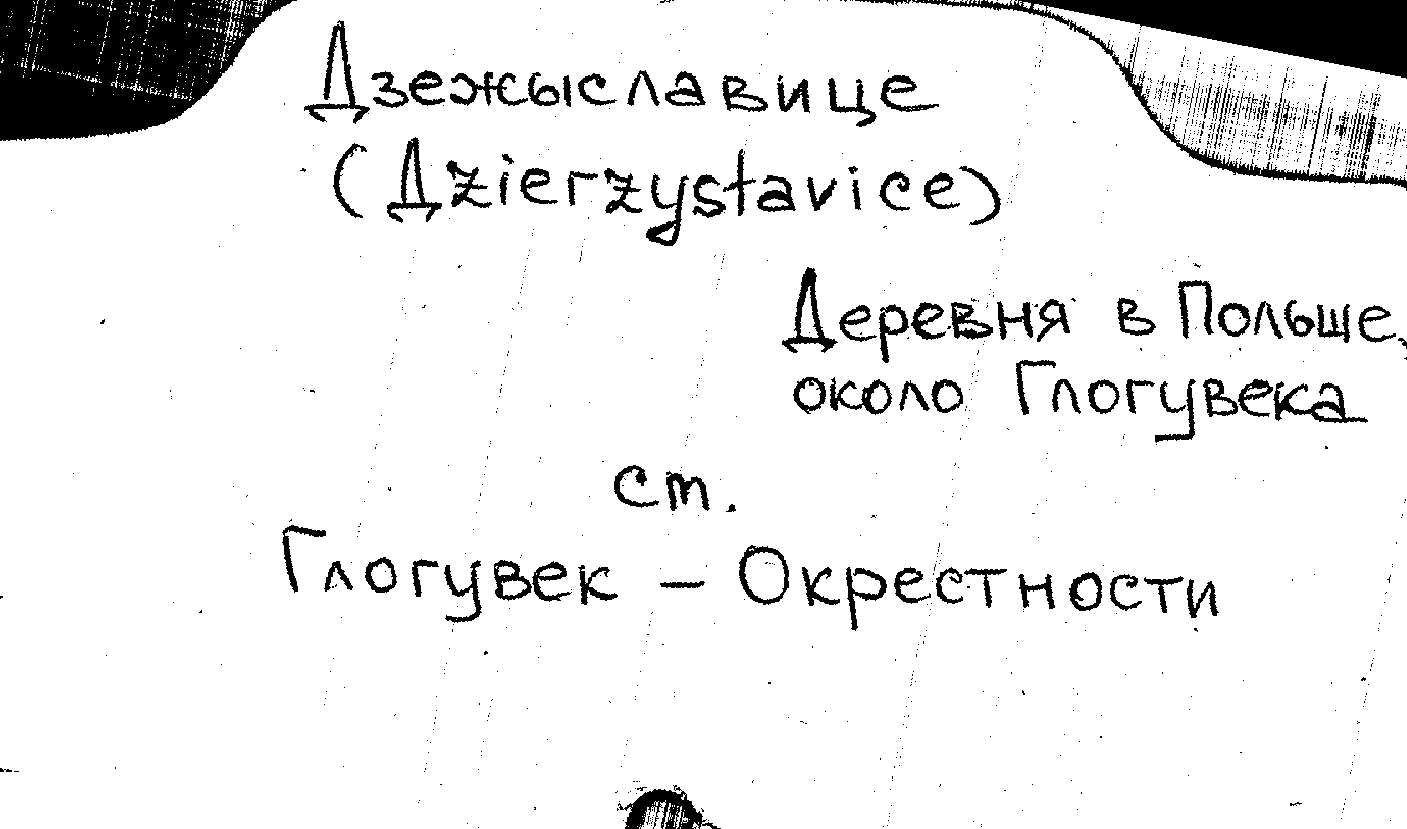 Дзежыславице
(Дzierzystavice)
Деревня в Польше,
около Глогувека
ст.
Глогувек – Окрестности